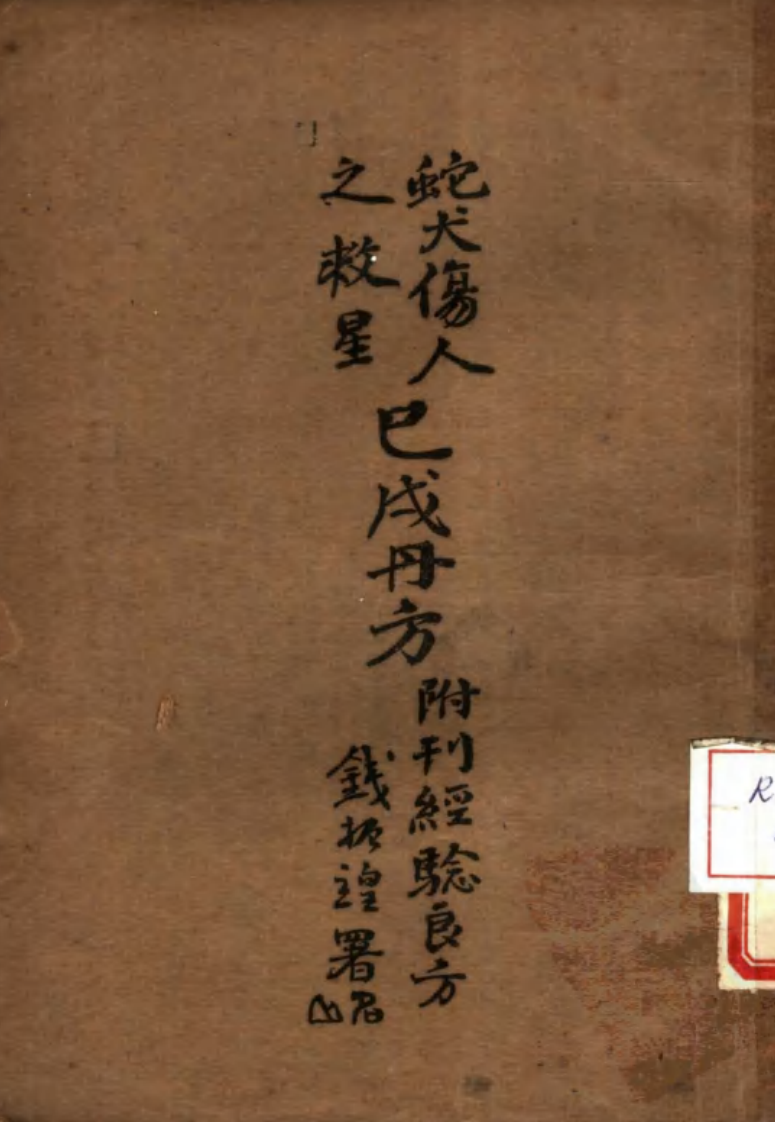 蛇犬傷人
之救星
巳戌丹方
附刊經驗良方
錢振鍠署
R